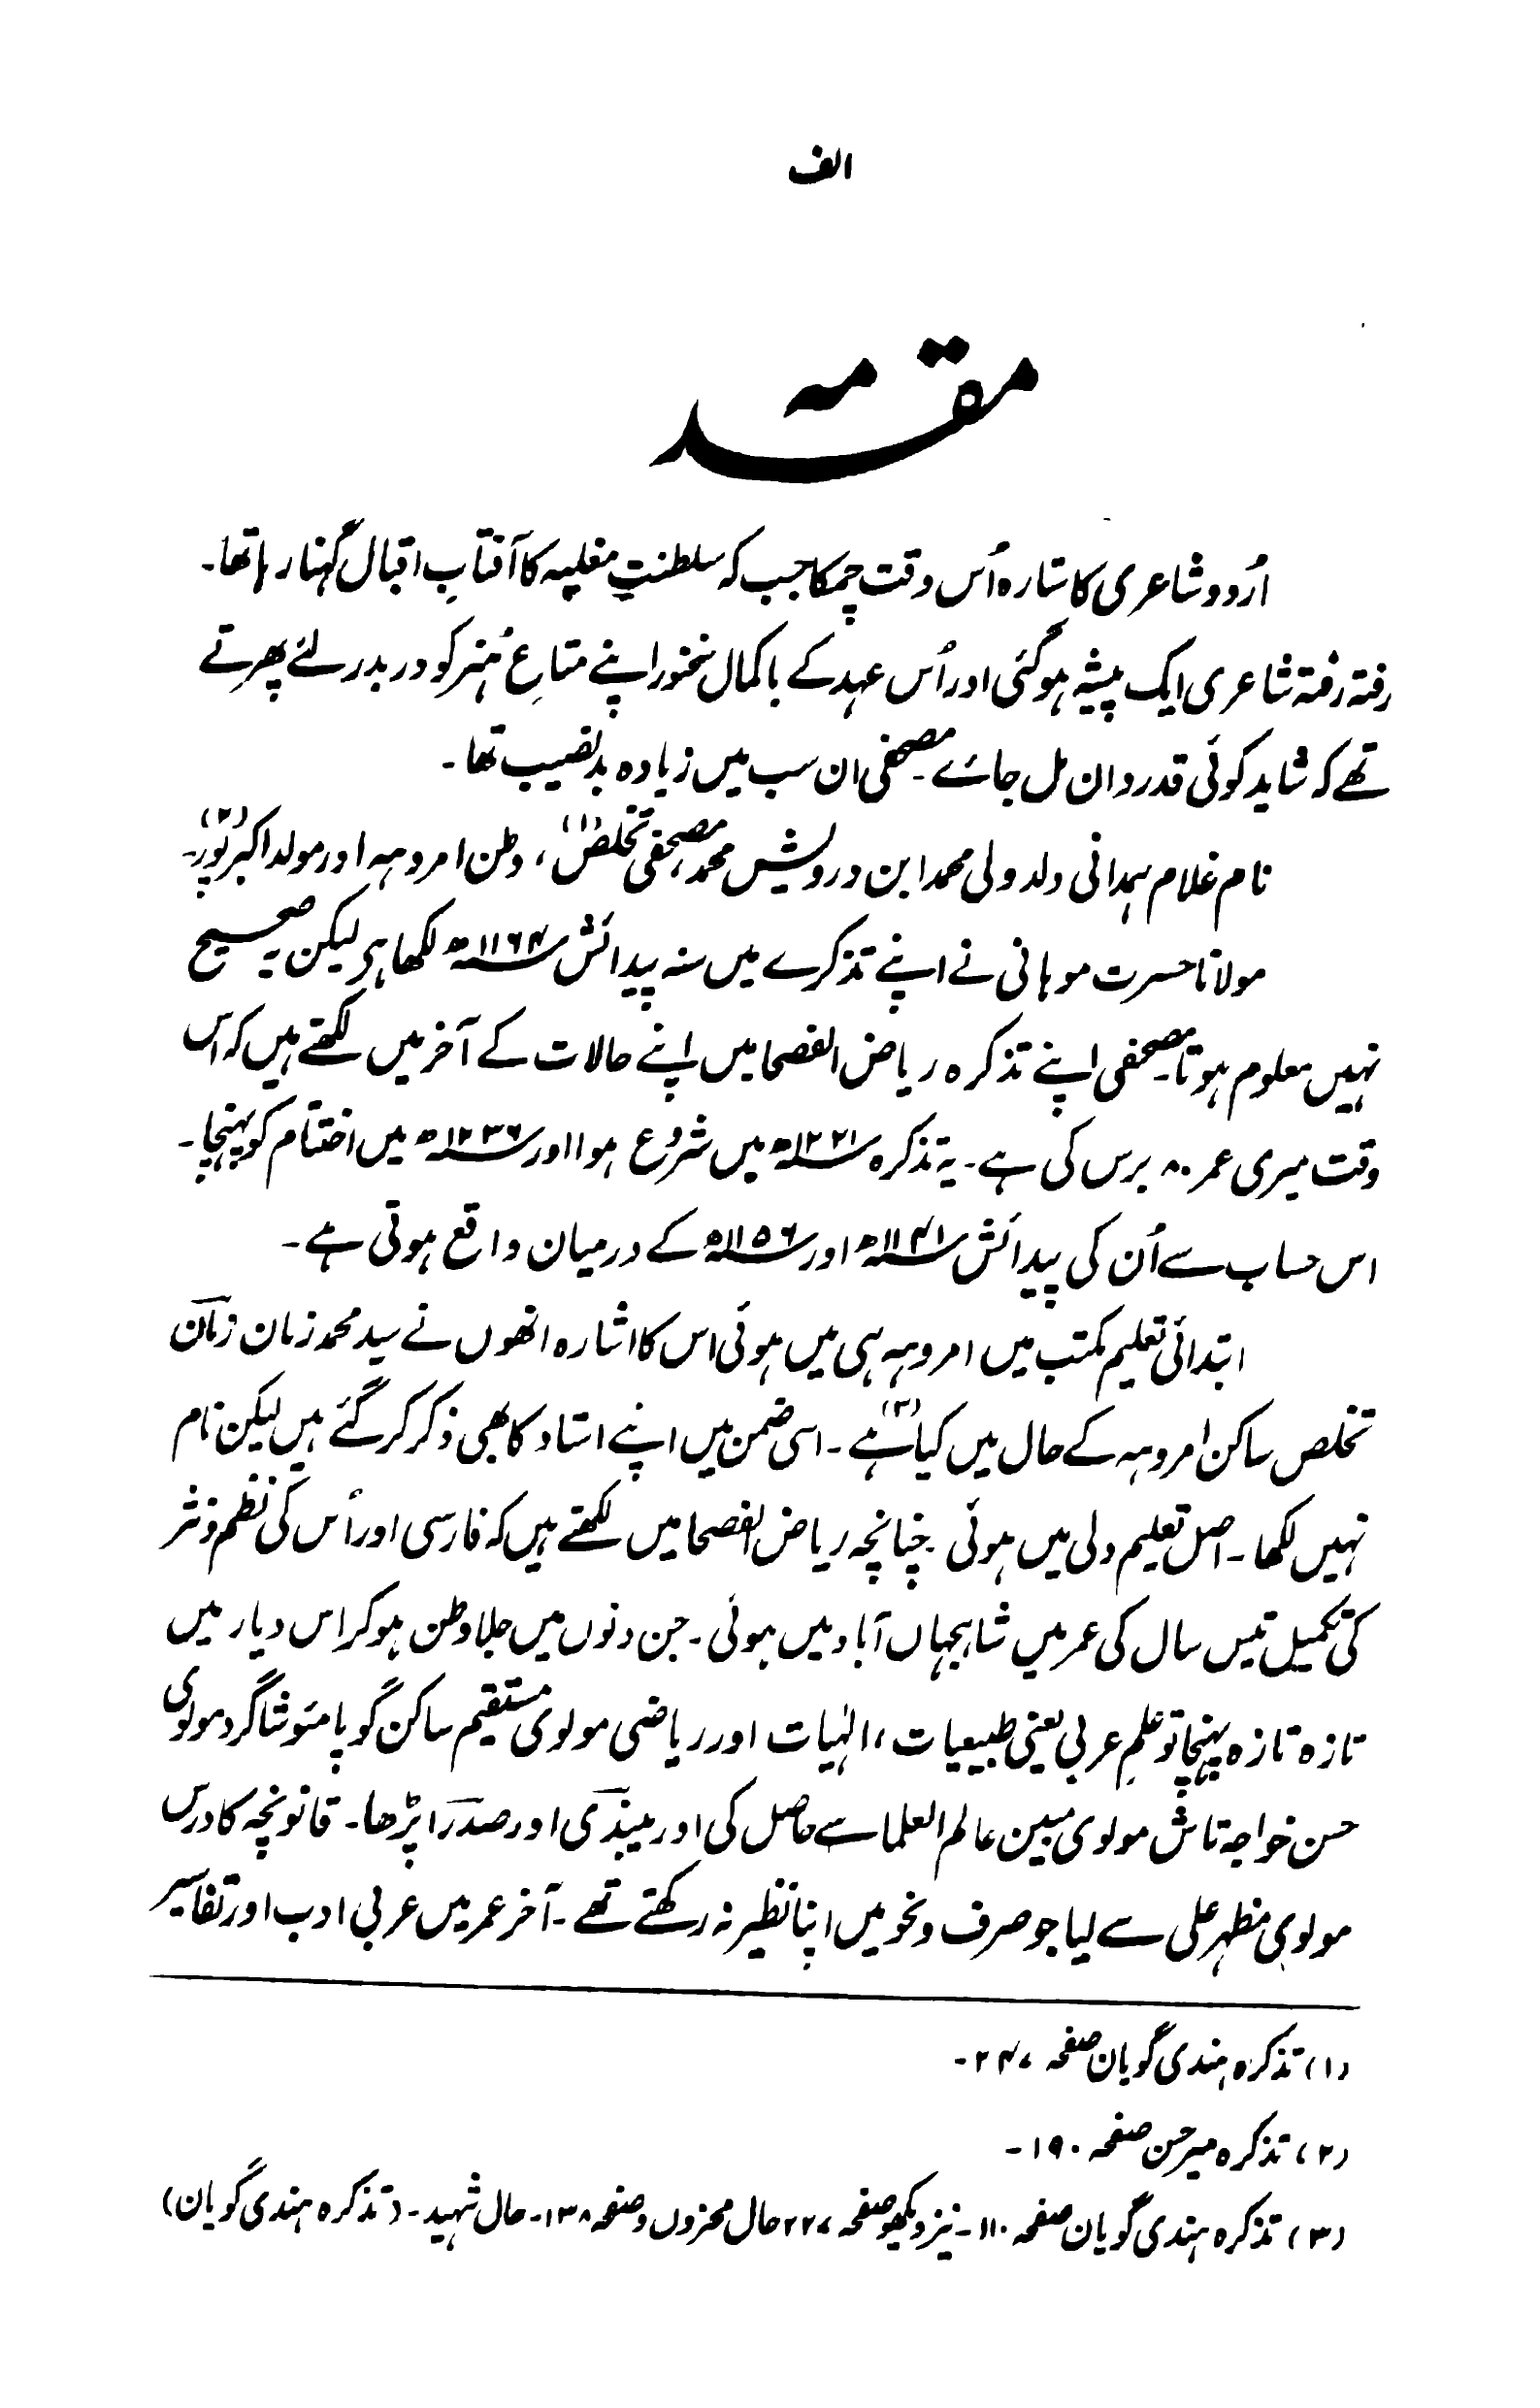 الف
مقدمہ
اُردو شاعری کا ستارہ اُس وقت چمکا جب کہ سلطنتِ مغلیہ کا آفتابِ اقبال گہنا رہا تھا۔
رفتہ رفتہ شاعری ایک پیشہ ہو گئی اور اُس عہد کے باکمال سخنور اپنے متاعِ ہُنر کو در بدر لئے پھرتے
تھے کہ شاید کوئی قدردان مل جائے۔ مصحفی ان سب میں زیادہ بدنصیب تھا۔
نام غلام ہمدانی ولد ولی محمد ابن درویش محمد، مصحفی تخلص(۱)، وطن امروہہ اور مولد اکبر پور(۲)۔
مولانا حسرت موہانی نے اپنے تذکرے میں سنہ پیدائش ۱۱۶۴ھ لکھا ہی لیکن یہ صحیح
نہیں معلوم ہوتا۔ مصحفی اپنے تذکرہ ریاض الفصحا میں اپنے حالات کے آخر میں لکھتے ہیں کہ اس
وقت میری عمر ۸۰ برس کی ہے۔ یہ تذکرہ ۱۲۲۱ھ میں شروع ہوا اور ۱۲۳۶ھ میں اختتام کو پہنچا۔
اس حساب سے اُن کی پیدائش ۱۱۴۱ھ اور ۱۱۵۶ھ کے درمیان واقع ہوتی ہے۔
ابتدائی تعلیم مکتب میں امروہہ ہی میں ہوئی اس کا اشارہ انھوں نے سید محمد زمان زماؔن
تخلص ساکن امروہہ کے حال میں کیا(۳) ہے۔ اسی ضمن میں اپنے استاد کا بھی ذکر کر گئے ہیں لیکن نام
نہیں لکھا۔ اصل تعلیم دلی میں ہوئی۔ چنانچہ ریاض الفصحا میں لکھتے ہیں کہ فارسی اور اُس کی نظم و نثر
کی تکمیل تیس سال کی عمر میں شاہجہاں آباد میں ہوئی۔ جن دنوں میں جلا وطن ہو کر اس دیار میں
تازہ تازہ پہنچا تو علمِ عربی یعنی طبیعیات، الٰہیات اور ریاضی مولوی مستقیم ساکن گوپامئو شاگرد مولوی
حسن خواجہ تاش مولوی مبین عالم العلما سے حاصل کی اور میبذؔی اور صدرؔا پڑھا۔ قانونچہ کا درس
مولوی مظہر علی سے لیا جو صرف و نحو میں اپنا نظیر نہ رکھتے تھے۔ آخر عمر میں عربی ادب اور تفاسیر
(۱) تذکرہ ہندی گویان صفحہ ۲۴۷۔
(۲) تذکرہ میر حسن صفحہ ۱۹۰۔
(۳) تذکرہ ہندی گویان صفحہ ۱۱۰۔ نیز دیکھو صفحہ ۲۲۷ حال محزوں و صفحہ ۱۳۸۔ حال شہید۔ (تذکرہ ہندی گویان)